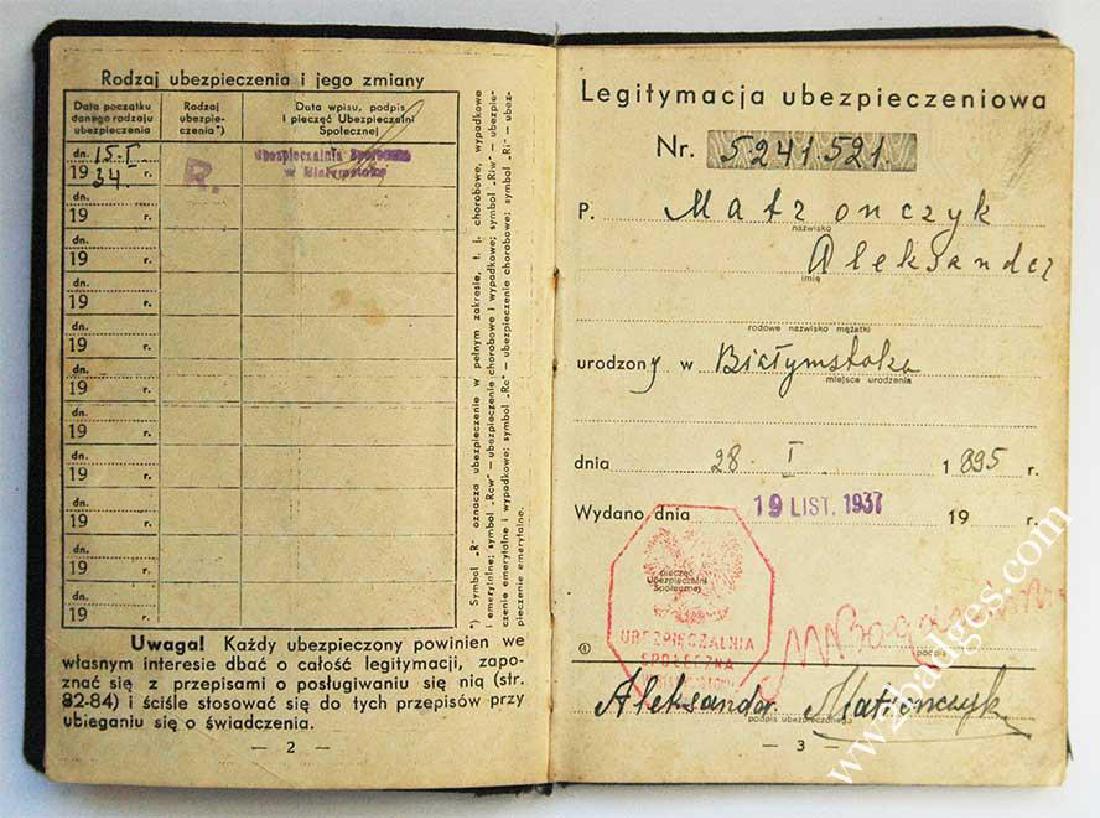 Rodzaj ubezpieczenia i jego zmiany
Data początku danego rodzaju ubezpieczenia
Rodzaj ubezpieczenia*)
Data wpisu, podpis i pieczęć Ubezpieczalni Społecznej
dn. 15.I.
19 34. r.
R.
Ubezpieczalnia Społeczna
w Białymstoku
dn.
19 r.
dn.
19 r.
dn.
19 r.
dn.
19 r.
dn.
19 r.
dn.
19 r.
dn.
19 r.
dn.
19 r.
dn.
19 r.
dn.
19 r.
*) Symbol „R" oznacza ubezpieczenie w pełnym zakresie, t. j. chorobowe, wypadkowe
i emerytalne; symbol „Rcw" — ubezpieczenie chorobowe i wypadkowe; symbol „Riw" — ubezpie-
czenie emerytalne i wypadkowe; symbol „Rc" — ubezpieczenie chorobowe; symbol „Ri" — ubez-
pieczenie emerytalne.
Uwaga! Każdy ubezpieczony powinien we
własnym interesie dbać o całość legitymacji, zapo-
znać się z przepisami o posługiwaniu się nią (str.
82-84) i ściśle stosować się do tych przepisów przy
ubieganiu się o świadczenia.
— 2 —
Legitymacja ubezpieczeniowa
Nr. 5.241.521.
P. Matronczyk
nazwisko
Aleksander
imię
rodowe nazwisko mężatki
urodzony w Białymstoku
miejsce urodzenia
dnia 28 I 1895 r.
Wydano dnia 19 LIST. 1937 19 r.
pieczęć
Ubezpieczalni
Społecznej
UBEZPIECZALNIA
SPOŁECZNA
podpis
Aleksander Matronczyk
podpis ubezpieczonego
— 3 —
www.2badges.com